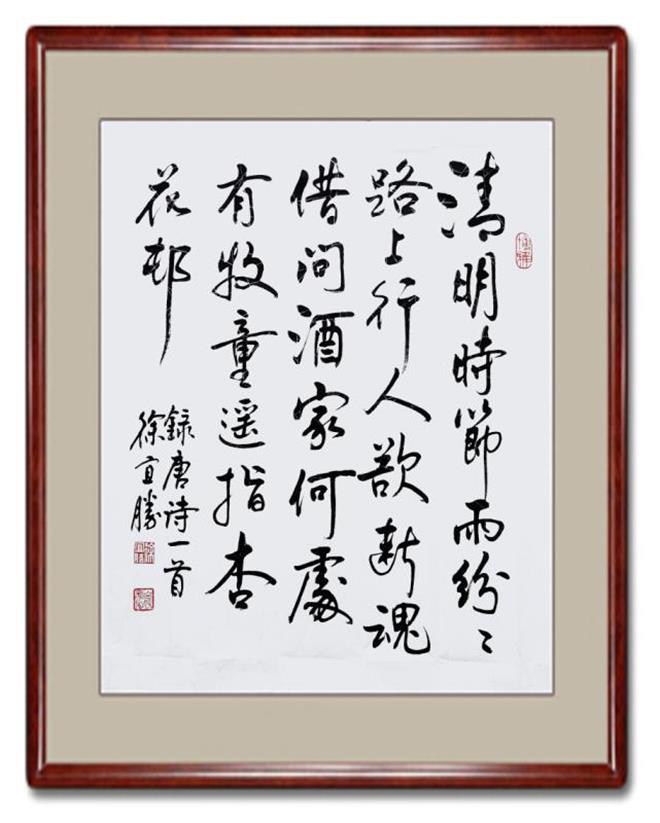 清明時節雨紛〻
路上行人欲断魂
借问酒家何處
有牧童遥指杏
花邨
録唐诗一首
徐宜勝